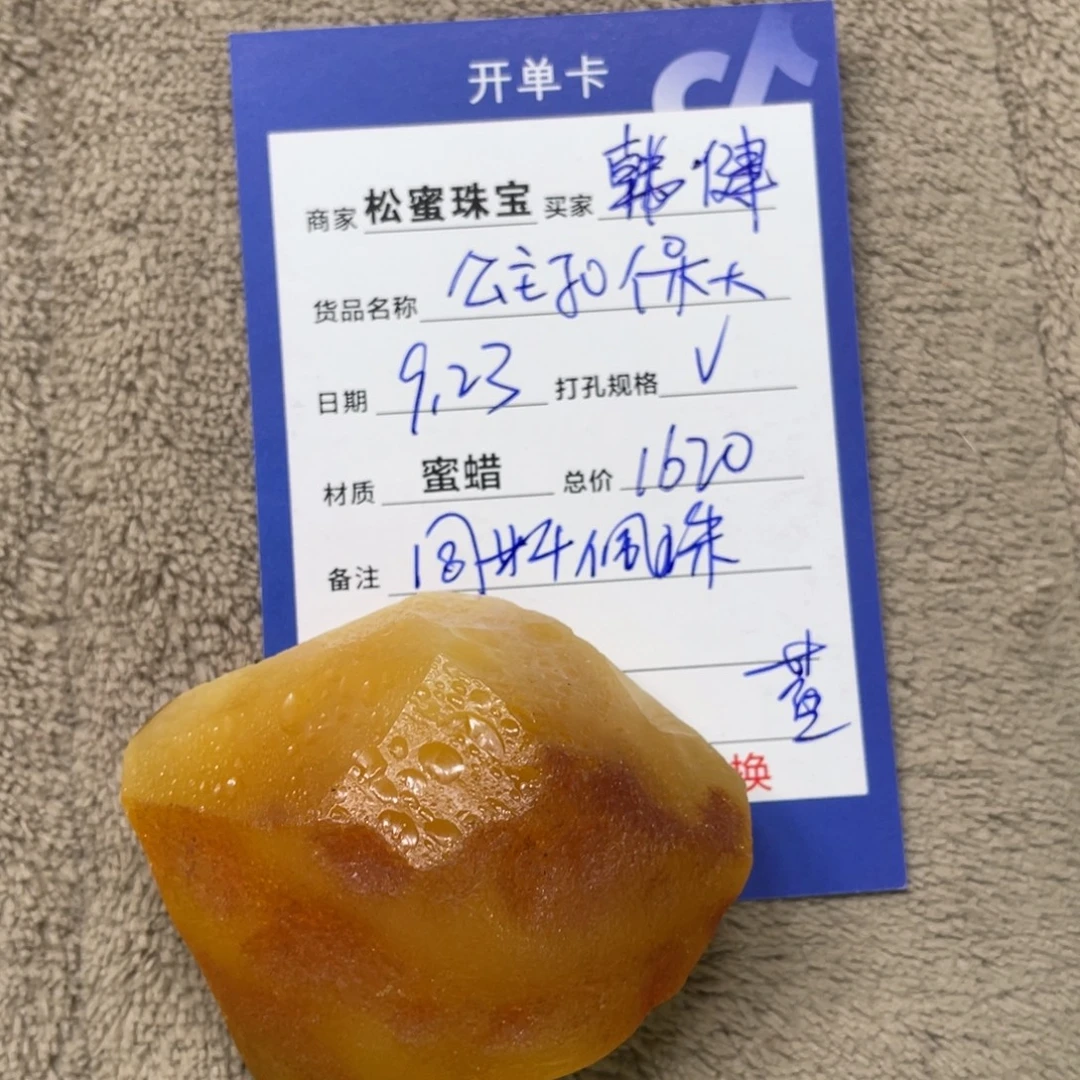 开单卡
商家 松蜜珠宝 买家 韩健
货品名称 公主孔保大
日期 9.23 打孔规格 √
材质 蜜蜡 总价 1620
备注 同料佩珠
换